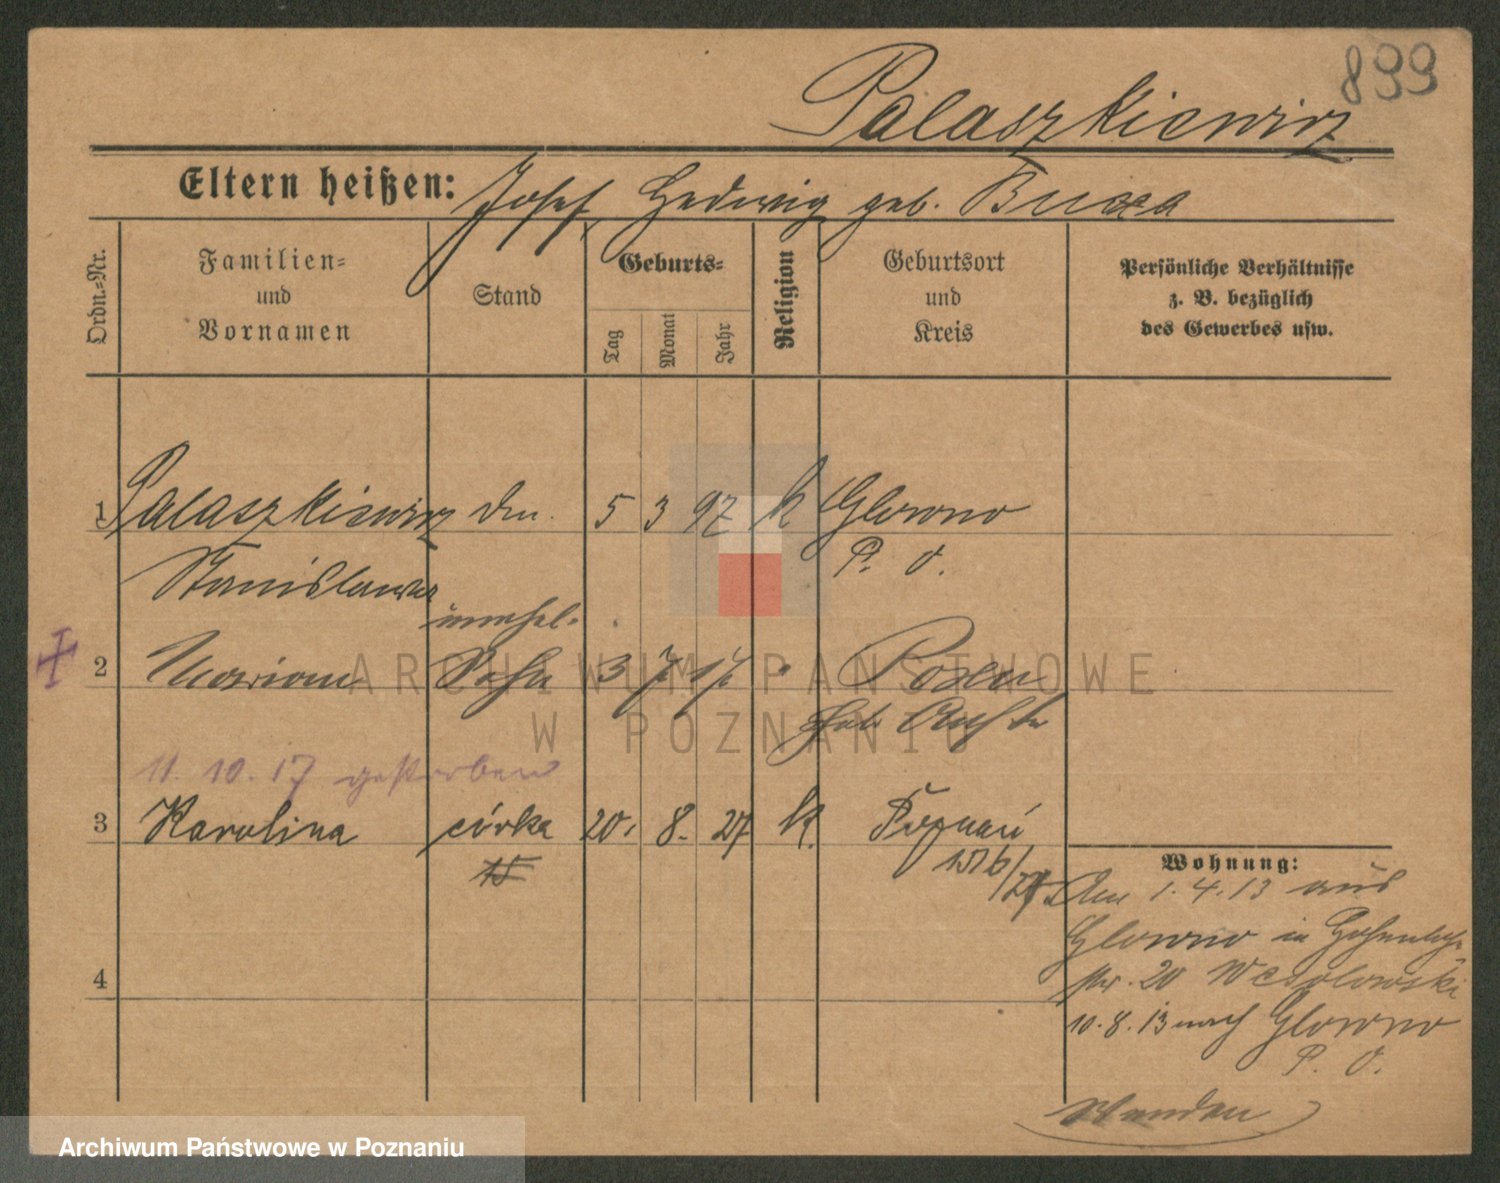 899
Palaszkiewicz
Eltern heißen: Josef, Hedwig geb.
Ordn.-Nr.
Familien-
und
Vornamen
Stand
Geburts-
Tag
Monat
Jahr
Religion
Geburtsort
und
Kreis
Persönliche Verhältnisse
z. B. bezüglich
des Gewerbes usw.
1 Palaszkiewicz 5 3 97 k Glowno
Stanislawa P. O.
unehel.
2 Sohn 3 7 17 " Posen
11. 10. 17 gestorben
3 Karolina córka 20. 8. 27 k. Poznań
15
Wohnung:
Am 1.4.13 aus
Glowno in
str. 20 Wesolowski
10.8.13 nach Glowno
P. O.
4
ARCHIWUM PAŃSTWOWE
W POZNANIU
Archiwum Państwowe w Poznaniu